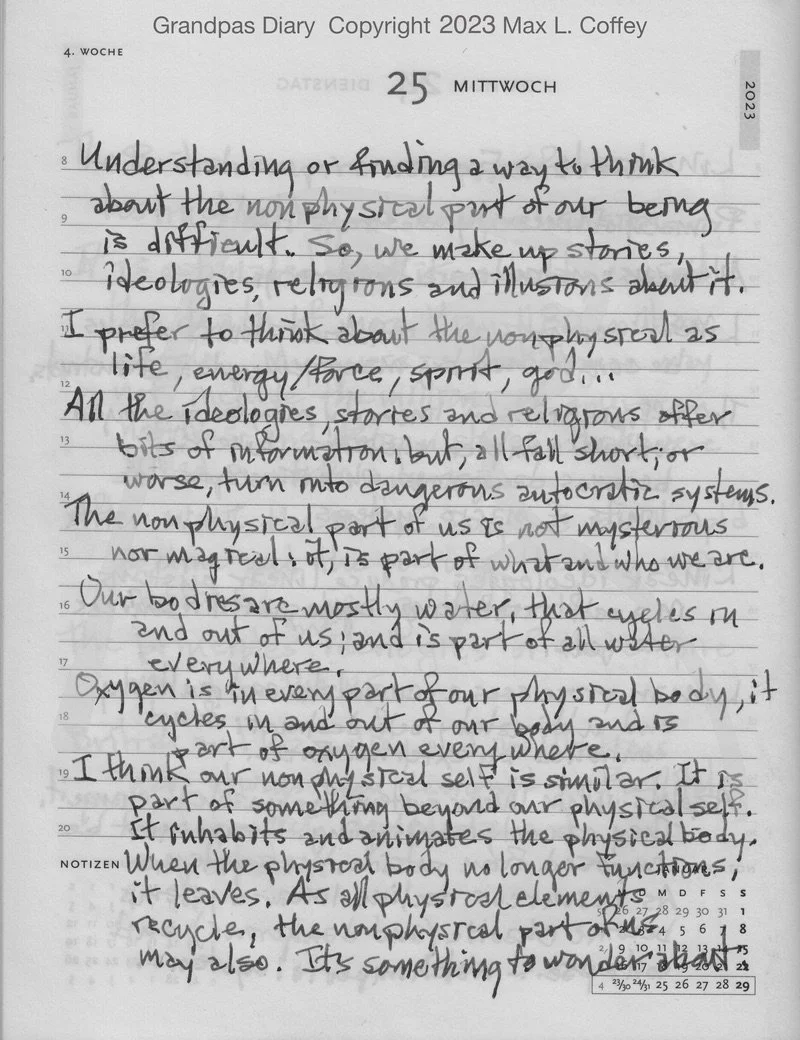 Grandpas Diary Copyright 2023 Max L. Coffey
4. WOCHE
25 MITTWOCH
2023
8 Understanding or finding a way to think
about the nonphysical part of our being
9
is difficult. So, we make up stories,
10 ideologies, religions and illusions about it.
11 I prefer to think about the nonphysical as
life, energy/force, spirit, god...
12
All the ideologies, stories and religions offer
13 bits of information: but, all fall short; or
worse, turn into dangerous autocratic systems.
14
The nonphysical part of us is not mysterious
15 nor magical: it, is part of what and who we are.
16 Our bodies are mostly water, that cycles in
and out of us; and is part of all water
17 everywhere.
Oxygen is in every part of our physical body, it
18 cycles in and out of our body and is
part of oxygen everywhere.
19 I think our nonphysical self is similar. It is
part of something beyond our physical self.
20 It inhabits and animates the physical body.
NOTIZEN When the physical body no longer functions,
it leaves. As all physical elements
recycle, the nonphysical part of us
may also. It's something to wonder about.
D M D F S S
26 27 28 29 30 31 1
4 5 6 7 8
9 10 11 12 13 15
22
4 23/30 24/31 25 26 27 28 29